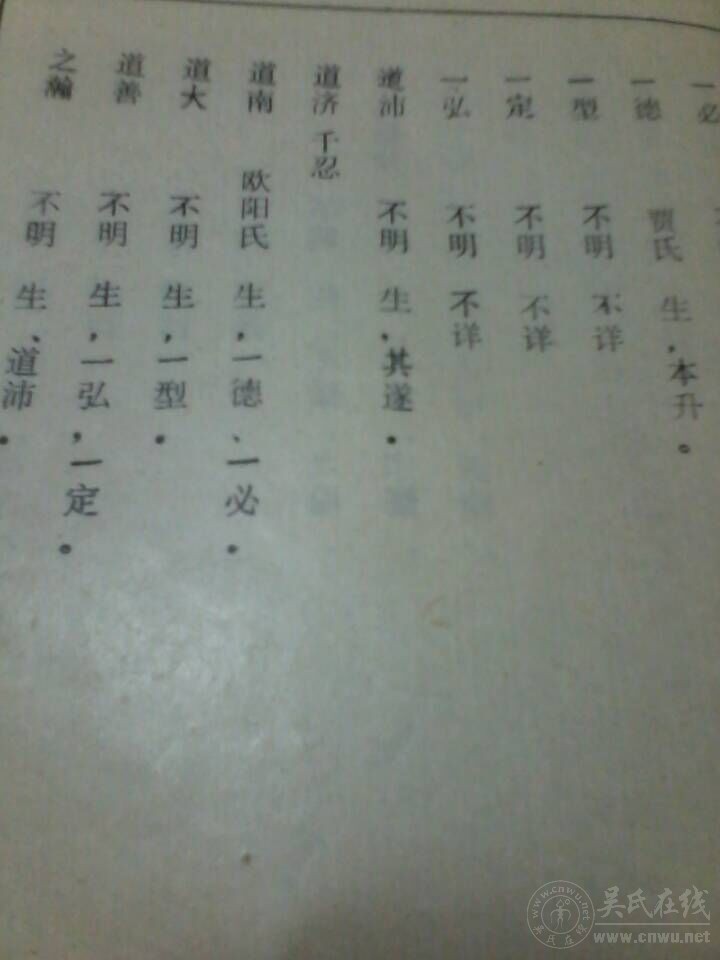 之瀚 不明 生、道沛。
道善 不明 生，一弘，一定。
道大 不明 生，一型。
道南 欧阳氏 生，一德、一必。
道济 千忍
道沛 不明 生，其遂。
一弘 不明 不详
一定 不明 不详
一型 不明 不详
一德 贾氏 生，本升。
一必
吴氏在线
www.cnwu.net